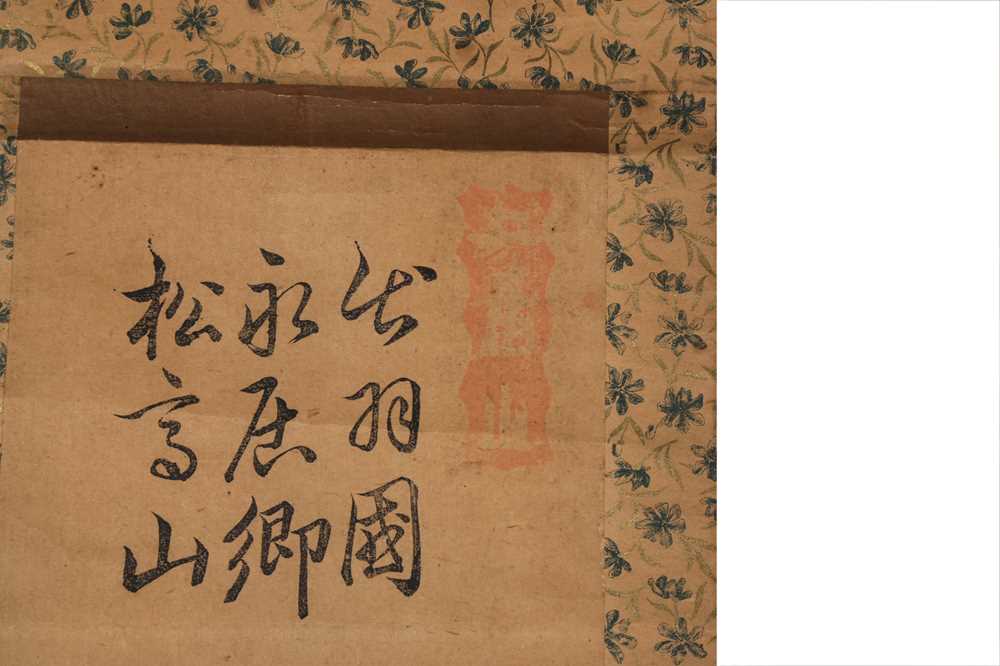 出羽國
永居郷
松高山